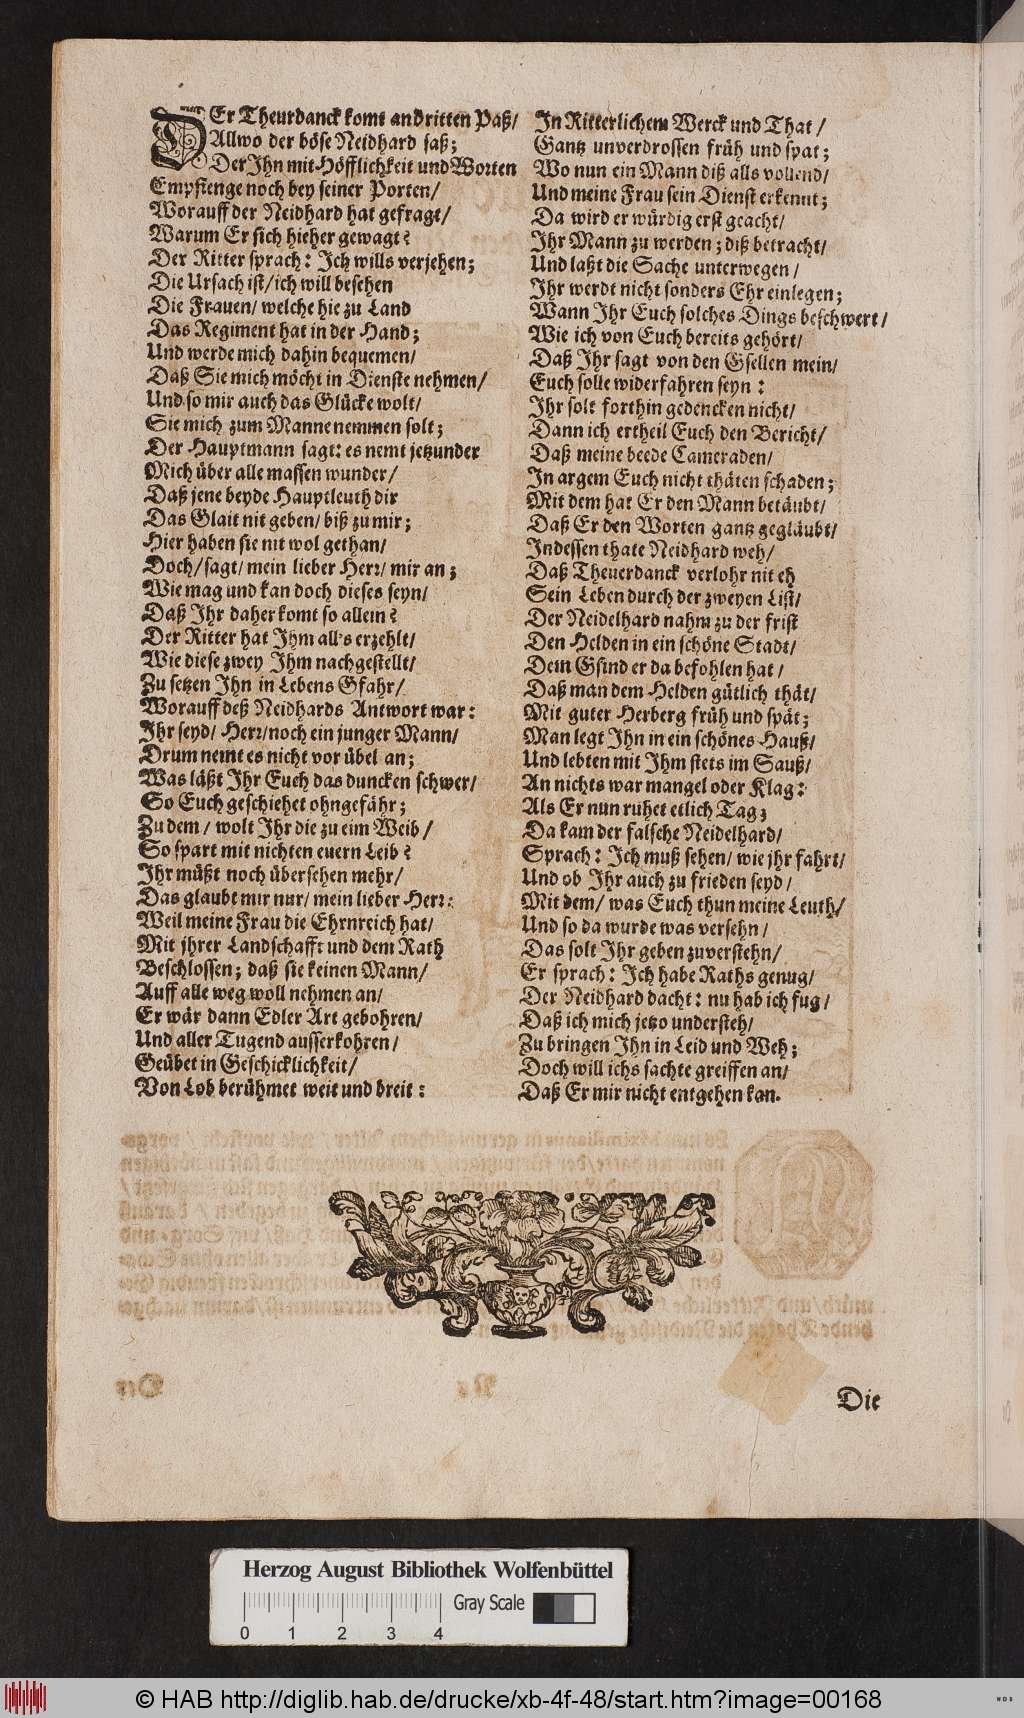 DEr Theurdanck komt an dritten Paß/
Allwo der böse Neidhard saß;
Der Ihn mit Höfflichkeit und Worten
Empfienge noch bey seiner Porten/
Worauff der Neidhard hat gefragt/
Warum Er sich hieher gewagt?
Der Ritter sprach: Ich wills verjehen;
Die Ursach ist/ ich will besehen
Die Frauen/ welche hie zu Land
Das Regiment hat in der Hand;
Und werde mich dahin bequemen/
Daß Sie mich möcht in Dienste nehmen/
Und so mir auch das Glücke wolt/
Sie mich zum Manne nemmen solt;
Der Hauptmann sagt: es nemt jetzunder
Mich über alle massen wunder/
Daß jene beyde Hauptleuth dir
Das Glait nit geben/ biß zu mir;
Hier haben sie nit wol gethan/
Doch/ sagt/ mein lieber Herr/ mir an;
Wie mag und kan doch dieses seyn/
Daß Ihr daher komt so allein?
Der Ritter hat Ihm alls erzehlt/
Wie diese zwey Ihm nachgestellt/
Zu setzen Ihn in Lebens Gfahr/
Worauff deß Neidhards Antwort war:
Ihr seyd/ Herr/ noch ein junger Mann/
Drum nemt es nicht vor übel an;
Was läßt Ihr Euch das duncken schwer/
So Euch geschiehet ohngefähr;
Zu dem/ wolt Ihr die zu eim Weib/
So spart mit nichten euern Leib?
Ihr müßt noch übersehen mehr/
Das glaubt mir nur/ mein lieber Herr:
Weil meine Frau die Ehrnreich hat/
Mit jhrer Landschafft und dem Rath
Beschlossen; daß sie keinen Mann/
Auff alle weg woll nehmen an/
Er wär dann Edler Art gebohren/
Und aller Tugend ausserkohren/
Geübet in Geschicklichkeit/
Von Lob berühmet weit und breit:
In Ritterlichem Werck und That/
Gantz unverdrossen früh und spat;
Wo nun ein Mann diß alls vollend/
Und meine Frau sein Dienst erkennt;
Da wird er würdig erst geacht/
Ihr Mann zu werden; diß betracht/
Und laßt die Sache unterwegen/
Ihr werdt nicht sonders Ehr einlegen;
Wann Ihr Euch solches Dings beschwert/
Wie ich von Euch bereits gehört/
Daß Ihr sagt von den Gsellen mein/
Euch solle widerfahren seyn:
Ihr solt forthin gedencken nicht/
Dann ich ertheil Euch den Bericht/
Daß meine beede Cameraden/
In argem Euch nicht thäten schaden;
Mit dem hat Er den Mann betäubt/
Daß Er den Worten gantz gegläubt/
Indessen thate Neidhard weh/
Daß Theuerdanck verlohr nit eh
Sein Leben durch der zweyen List/
Der Neidelhard nahm zu der frist
Den Helden in ein schöne Stadt/
Dem Gsind er da befohlen hat/
Daß man dem Helden gütlich thät/
Mit guter Herberg früh und spät;
Man legt Ihn in ein schönes Hauß/
Und lebten mit Ihm stets im Sauß/
An nichts war mangel oder Klag:
Als Er nun ruhet etlich Tag;
Da kam der falsche Neidelhard/
Sprach: Ich muß sehen/ wie jhr fahrt/
Und ob Ihr auch zu frieden seyd/
Mit dem/ was Euch thun meine Leuth/
Und so da wurde was versehn/
Das solt Ihr geben zuverstehn/
Er sprach: Ich habe Raths genug/
Der Neidhard dacht: nu hab ich fug/
Daß ich mich jetzo understeh/
Zu bringen Ihn in Leid und Weh;
Doch will ichs sachte greiffen an/
Daß Er mir nicht entgehen kan.
Die
Herzog August Bibliothek Wolfenbüttel
Gray Scale
0 1 2 3 4
© HAB http://diglib.hab.de/drucke/xb-4f-48/start.htm?image=00168